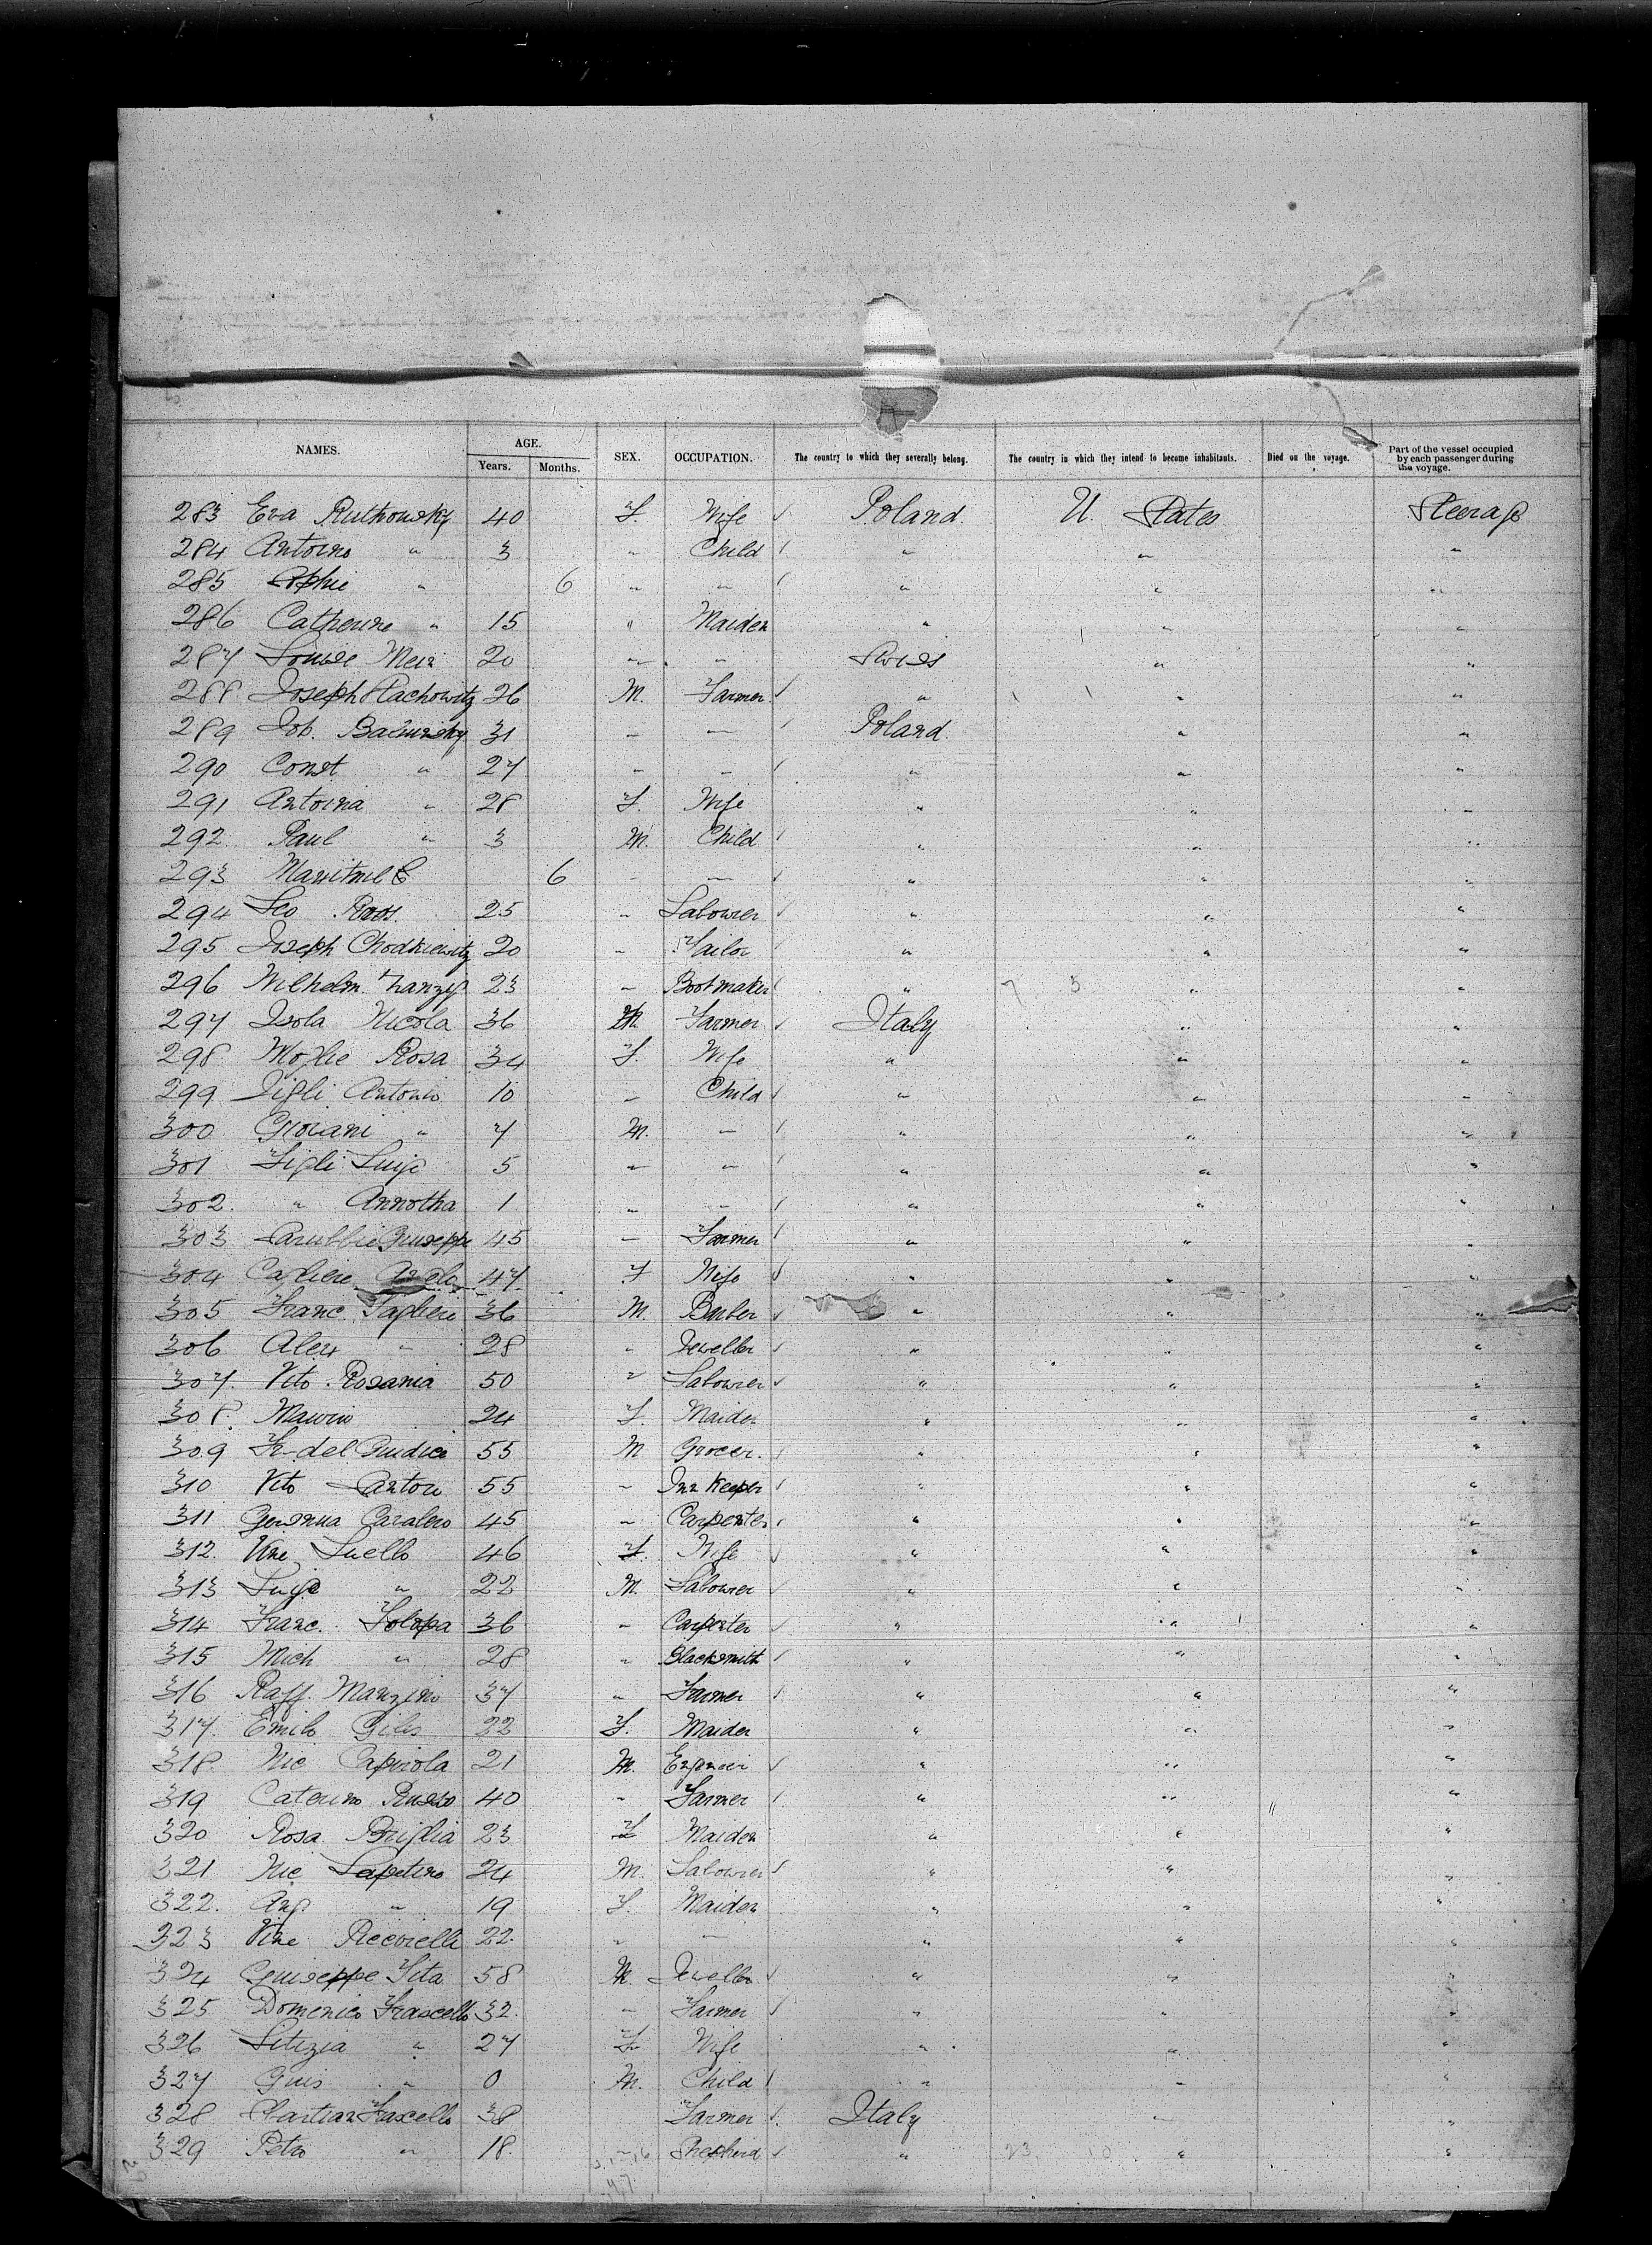 NAMES. AGE. SEX. OCCUPATION. The country to which they severally belong. The country in which they intend to become inhabitants. Died on the voyage. Part of the vessel occupied by each passenger during the voyage.
Years. Months.
283 Eva Ruthowsky 40 F. Wife Poland. U. States Steerage
284 Antoino " 3 " Child " " "
285 Sophie " 6 " " " " "
286 Catherine " 15 " Maiden " " "
287 Louise Meir 20 " " Swiss " "
288 Joseph Rachowitz 26 M. Farmer. " " "
289 Job. 31 " " Poland. " "
290 Const " 27 " " " " "
291 Antoina " 28 F. Wife " " "
292. Paul " 3 M. Child " " "
293 6 " " " " "
294 Leo Roos. 25 " Labourer " " "
295. Joseph Chodkiewitz 20 " Tailor " " "
296 Wilhelm 23 " Bootmaker " " "
297 Isola Nicola 36 M. Farmer Italy " "
298 Moglie Rosa 34 F. Wife " " "
299 Figli Antonio 10 " Child " " "
300 Giovani " 7 M. " " " "
301 Figli Luigi 5 " " " " "
302. " Annotha 1 " " " " "
303 Giuseppe 45 " Farmer " " "
304 Cagliere 47. F Wife " " "
305 Franc. Tagliere 36 M. Barber " " "
306 Alex " 28 " Jeweller " " "
307. Vito Rosania 50 " Labourer " " "
308. 24 F. Maiden " " "
309 Fr-del Giudice 55 M Grocer. " " "
310 Vito Santore 55 " Inn Keeper " " "
311 Cavalero 45 " Carpenter " " "
312. Vine Luello 46 F. Wife " " "
313 Luigi " 22 M. Labourer " " "
314 Franc. Folopa 36 " Carpenter " " "
315 Mich " 28 " Blacksmith " " "
316 Raff. Manzino 37 " Farmer " " "
317. Emilo 22 F. Maiden " " "
318. Nic Capirola 21 M. " " "
319 Caterino Russo 40 " Farmer " " "
320 Rosa Briglia 23 F Maiden " " "
321 Nic Lapetino 24 M. Labourer " " "
322. Ang " 19 F. Maiden " " "
323 Vine Riccirelli 22. " " " " "
324 Guiseppe Fita 58 M. Jeweller " " "
325 Domenico Frascello 32. " Farmer " " "
326 Litizia " 27 F Wife " " "
327 Guis " 0 M. Child " " "
328 Frascello 38 Farmer Italy " "
329 Petro " 18. Shepherd " " "